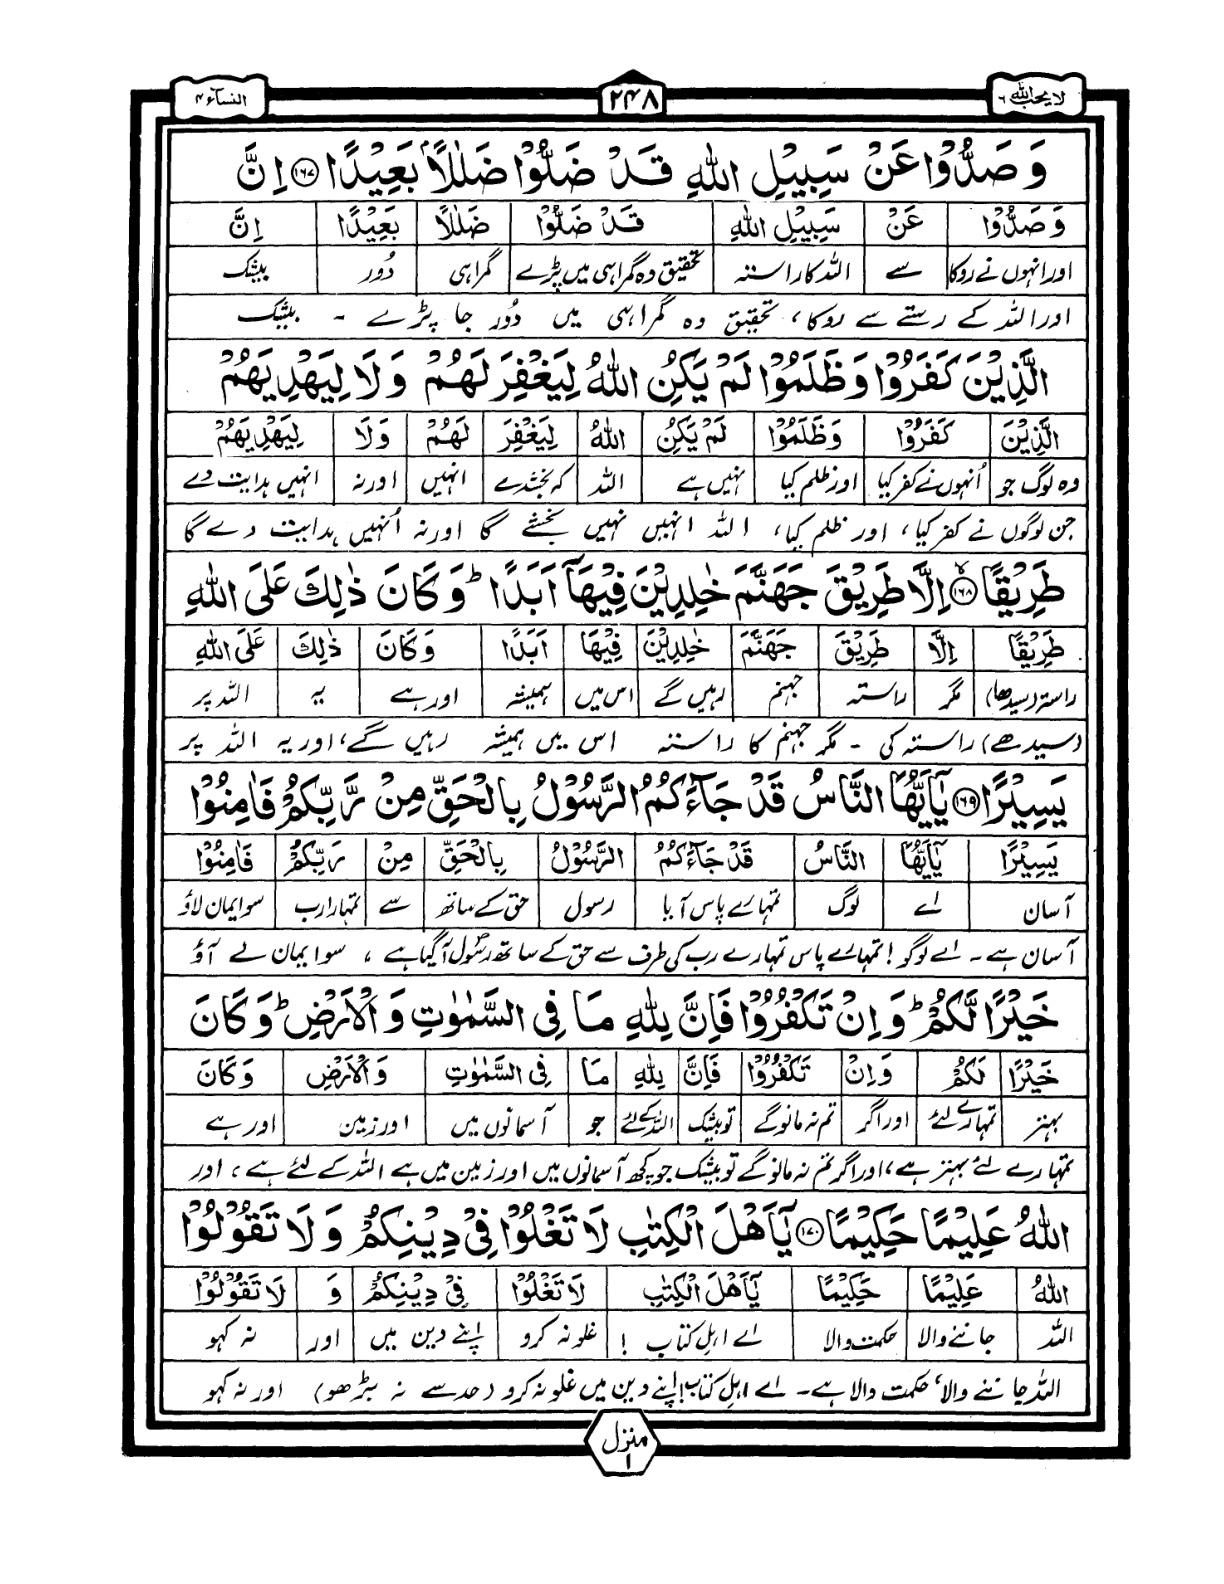 لا یحب اللہ ۶
۲۴۸
النسآء ۴
وَصَدُّوْا عَنْ سَبِیْلِ اللّٰهِ قَدْ ضَلُّوْا ضَلٰلًاۢ بَعِیْدًا ﴿۱۶۷﴾ اِنَّ
وَصَدُّوْا عَنْ سَبِیْلِ اللّٰهِ قَدْ ضَلُّوْا ضَلٰلًا بَعِیْدًا اِنَّ
اور انہوں نے روکا سے اللہ کا راستہ تحقیق وہ گمراہی میں پڑے گمراہی دُور بیشک
اور اللہ کے رستے سے روکا، تحقیق وہ گمراہی میں دُور جا پڑے ۔ بیشک
الَّذِیْنَ كَفَرُوْا وَظَلَمُوْا لَمْ یَكُنِ اللّٰهُ لِیَغْفِرَ لَهُمْ وَلَا لِیَهْدِیَهُمْ
الَّذِیْنَ كَفَرُوْا وَظَلَمُوْا لَمْ یَكُنِ اللّٰهُ لِیَغْفِرَ لَهُمْ وَلَا لِیَهْدِیَهُمْ
وہ لوگ جو اُنہوں نے کفر کیا اور ظلم کیا نہیں ہے اللہ کہ بخشدے انہیں اور نہ انہیں ہدایت دے
جن لوگوں نے کفر کیا، اور ظلم کیا، اللہ انہیں نہیں بخشے گا اور نہ اُنہیں ہدایت دے گا
طَرِیْقًا ﴿۱۶۸﴾ اِلَّا طَرِیْقَ جَهَنَّمَ خٰلِدِیْنَ فِیْهَاۤ اَبَدًا ؕ وَكَانَ ذٰلِكَ عَلَی اللّٰهِ
طَرِیْقًا اِلَّا طَرِیْقَ جَهَنَّمَ خٰلِدِیْنَ فِیْهَا اَبَدًا وَكَانَ ذٰلِكَ عَلَی اللّٰهِ
راستہ (سیدھا) مگر راستہ جہنم رہیں گے اس میں ہمیشہ اور ہے یہ اللہ پر
(سیدھے) راستہ کی ۔ مگر جہنم کا راستہ اس میں ہمیشہ رہیں گے، اور یہ اللہ پر
یَسِیْرًا ﴿۱۶۹﴾ یٰۤاَیُّهَا النَّاسُ قَدْ جَآءَكُمُ الرَّسُوْلُ بِالْحَقِّ مِنْ رَّبِّكُمْ فَاٰمِنُوْا
یَسِیْرًا یٰۤاَیُّهَا النَّاسُ قَدْ جَآءَكُمُ الرَّسُوْلُ بِالْحَقِّ مِنْ رَبِّكُمْ فَاٰمِنُوْا
آسان اے لوگ تمہارے پاس آیا رسول حق کے ساتھ سے تمہارا رب سو ایمان لاؤ
آسان ہے ۔ اے لوگو! تمہارے پاس تمہارے رب کی طرف سے حق کے ساتھ رسول آگیا ہے ، سو ایمان لے آؤ
خَیْرًا لَّكُمْ ؕ وَاِنْ تَكْفُرُوْا فَاِنَّ لِلّٰهِ مَا فِی السَّمٰوٰتِ وَالْاَرْضِ ؕ وَكَانَ
خَیْرًا لَكُمْ وَاِنْ تَكْفُرُوْا فَاِنَّ لِلّٰهِ مَا فِی السَّمٰوٰتِ وَالْاَرْضِ وَكَانَ
بہتر تمہارے لئے اور اگر تم نہ مانوگے تو بیشک اللہ کے لئے جو آسمانوں میں اور زمین اور ہے
تمہارے لئے بہتر ہے، اور اگر تم نہ مانوگے تو بیشک جو کچھ آسمانوں میں اور زمین میں ہے اللہ کے لئے ہے ، اور
اللّٰهُ عَلِیْمًا حَكِیْمًا ﴿۱۷۰﴾ یٰۤاَهْلَ الْكِتٰبِ لَا تَغْلُوْا فِیْ دِیْنِكُمْ وَلَا تَقُوْلُوْا
اللّٰهُ عَلِیْمًا حَكِیْمًا یٰۤاَهْلَ الْكِتٰبِ لَا تَغْلُوْا فِیْ دِیْنِكُمْ وَ لَا تَقُوْلُوْا
اللہ جاننے والا حکمت والا اے اہل کتاب ! غلو نہ کرو اپنے دین میں اور نہ کہو
اللہ جاننے والا، حکمت والا ہے ۔ اے اہل کتاب! اپنے دین میں غلو نہ کرو (حد سے نہ بڑھو) اور نہ کہو
منزل ۱